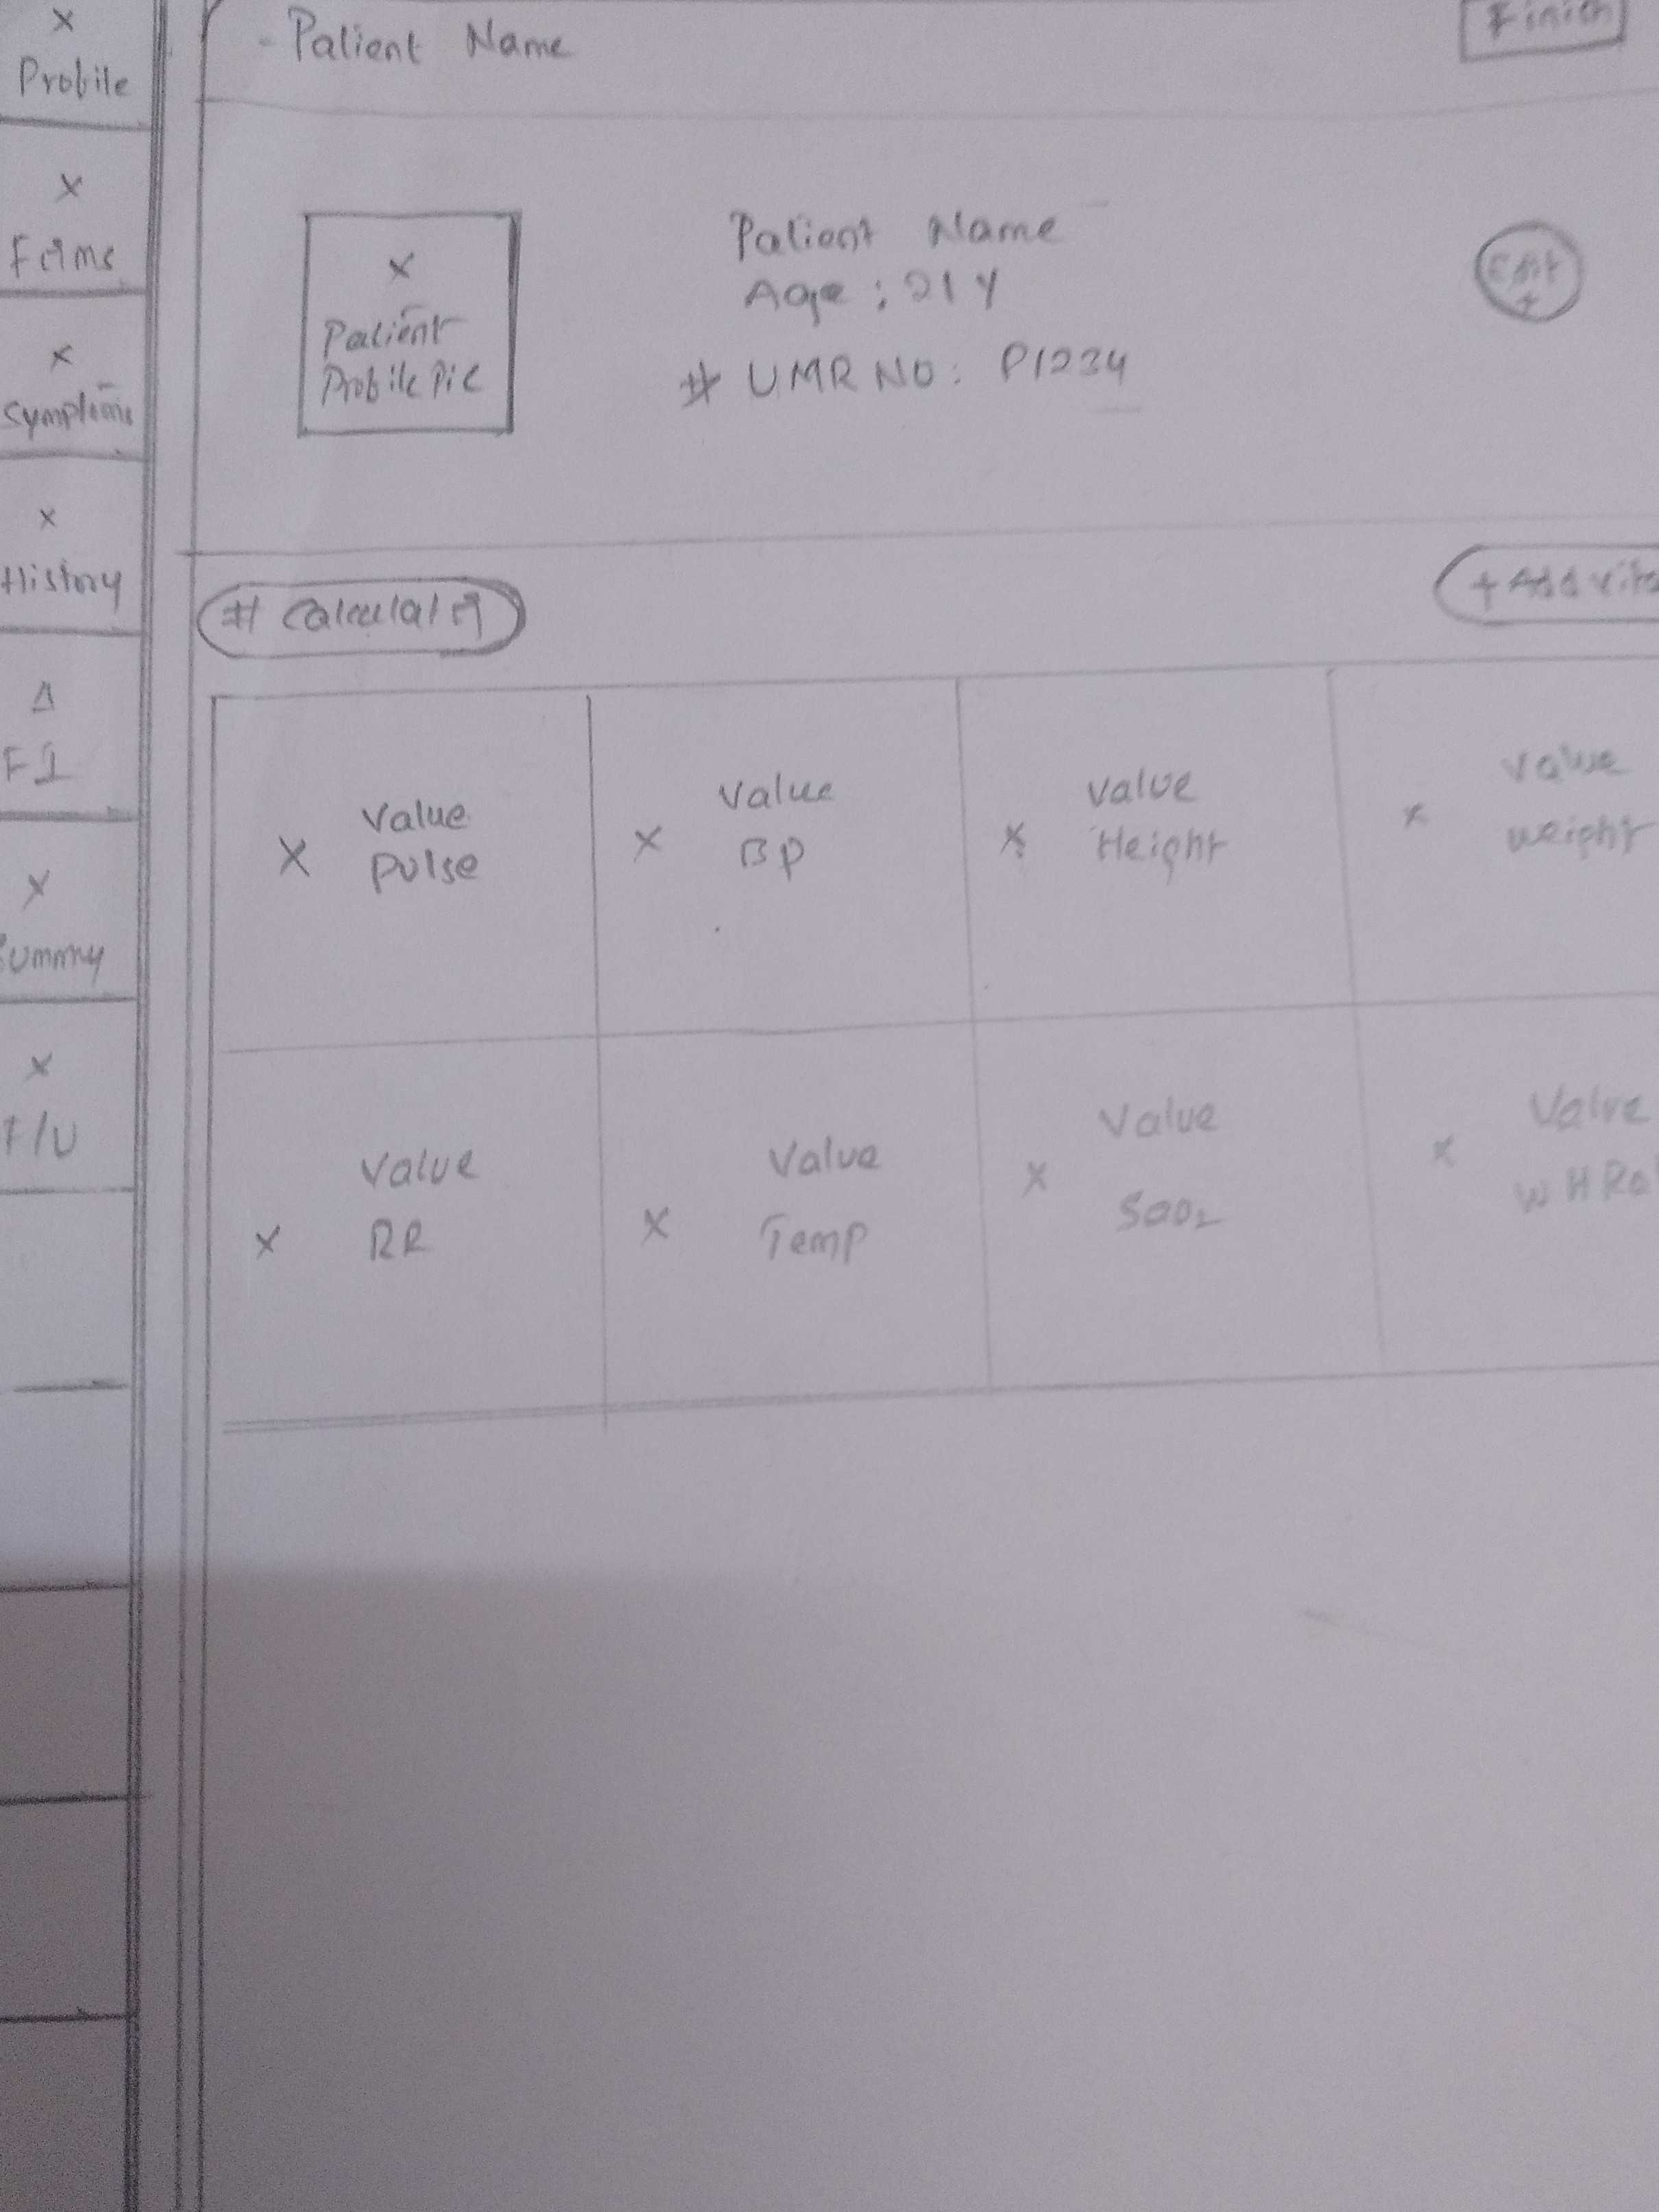 x
Profile
x
Forms
x
Symptoms
x
History
Δ
F I
x
Summy
x
F/U
- Patient Name
Finish
x
Patient
Profile Pic
Patient Name
Age : 21 Y
# UMR NO : P1234
Edit
+
# Calculator
+ Add Vita
x Value
Pulse
x Value
BP
x Value
Height
x Value
Weight
x Value
RR
x Value
Temp
x Value
SaO2
x Value